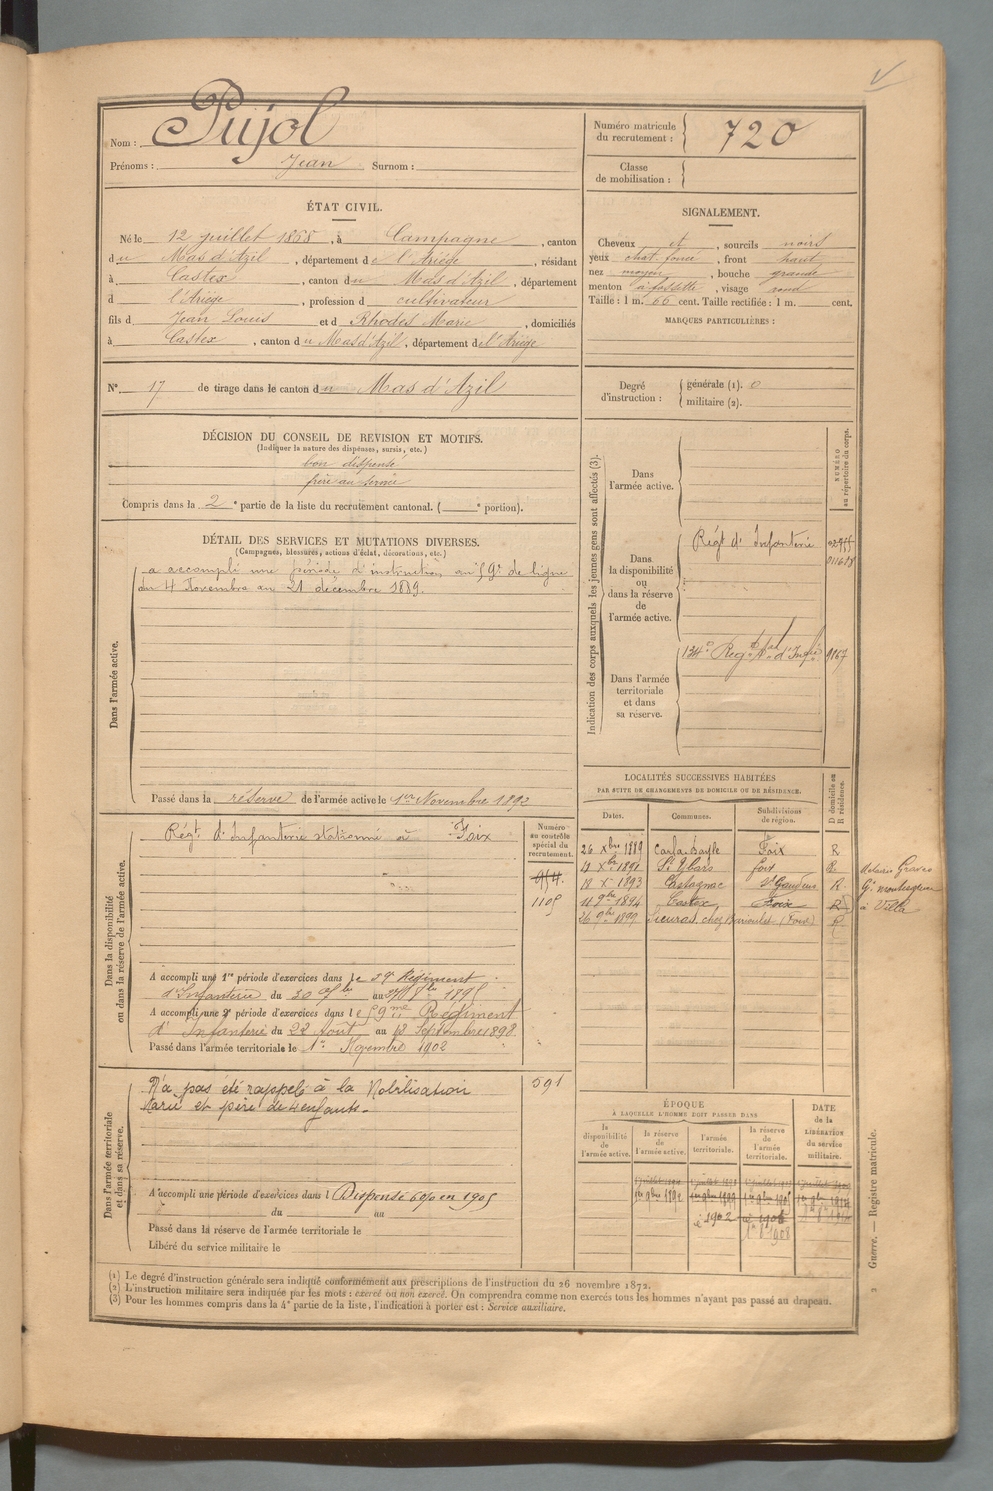 Nom : Pujol
Prénoms : Jean Surnom :
Numéro matricule du recrutement : 720
Classe de mobilisation :
ÉTAT CIVIL.
Né le 12 juillet 1868, à Campagne, canton
du Mas d'Azil, département de l'Ariège, résidant
à Castex, canton du Mas d'Azil, département
d l'Ariège, profession d cultivateur
fils d Jean Louis et d Rhodes Marie, domiciliés
à Castex, canton du Mas d'Azil, département de l'Ariège
SIGNALEMENT.
Cheveux et, sourcils noirs
yeux chat. foncé, front haut
nez moyen, bouche grande
menton à fossette, visage rond
Taille : 1 m. 66 cent. Taille rectifiée : 1 m. cent.
MARQUES PARTICULIÈRES :
N° 17 de tirage dans le canton du Mas d'Azil
Degré d'instruction : générale (1). 0
militaire (2).
DÉCISION DU CONSEIL DE REVISION ET MOTIFS.
(Indiquer la nature des dispenses, sursis, etc.)
bon dispensé
frère au service
Compris dans la 2e partie de la liste du recrutement cantonal. ( e portion).
DÉTAIL DES SERVICES ET MUTATIONS DIVERSES.
(Campagnes, blessures, actions d'éclat, décorations, etc.)
Dans l'armée active.
a accompli une période d'instruction au 59e de ligne
du 4 Novembre au 21 décembre 1889.
Passé dans la réserve de l'armée active le 1er Novembre 1892
Indication des corps auxquels les jeunes gens sont affectés (3).
NUMÉRO au répertoire du corps.
Dans l'armée active.
Dans la disponibilité ou dans la réserve de l'armée active.
Régt d'Infanterie
Dans l'armée territoriale et dans sa réserve.
134e Régt tal d'Infie 9167
LOCALITÉS SUCCESSIVES HABITÉES
PAR SUITE DE CHANGEMENTS DE DOMICILE OU DE RÉSIDENCE.
Dates. Communes. Subdivisions de région. D domicile ou R résidence.
26 Xbre 1889 Carla-Bayle Foix R
18 Xbre 1891 St Ybars foix R.
18 X 1893 Castagnac St Gaudens R.
11 9bre 1894 Castex Foix R
26 9bre 1899 Sieuras, chez (Foix) R
Villa
Dans la disponibilité ou dans la réserve de l'armée active.
Numéro au contrôle spécial du recrutement.
Régt d'Infanterie stationné à Foix
954.
1105
A accompli une 1re période d'exercices dans le 59e Régiment
d'Infanterie du 30 7bre au 27 8bre 1895
A accompli une 2e période d'exercices dans le 59me Régiment
d'Infanterie du 22 Août au 18 Septembre 1898.
Passé dans l'armée territoriale le 1er Novembre 1902
Dans l'armée territoriale et dans sa réserve.
N'a pas été rappelé à la Mobilisation 591
Marié et père de 4 enfants.
A accompli une période d'exercices dans l Dispensé 6 % en 1905
du au
Passé dans la réserve de l'armée territoriale le
Libéré du service militaire le
ÉPOQUE
À LAQUELLE L'HOMME DOIT PASSER DANS
la disponibilité de l'armée active.
la réserve de l'armée active.
l'armée territoriale.
la réserve de l'armée territoriale.
DATE de la LIBÉRATION du service militaire.
1er 9bre 1892 1er 9bre 1899
1902 1908
(1) Le degré d'instruction générale sera indiqué conformément aux prescriptions de l'instruction du 26 novembre 1872.
(2) L'instruction militaire sera indiquée par les mots : exercé ou non exercé. On comprendra comme non exercés tous les hommes n'ayant pas passé au drapeau.
(3) Pour les hommes compris dans la 4e partie de la liste, l'indication à porter est : Service auxiliaire.
Guerre. — Registre matricule.